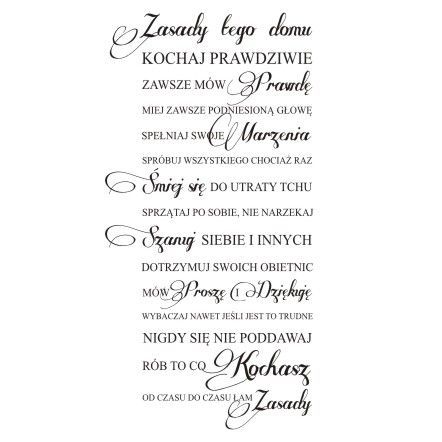 Zasady tego domu
KOCHAJ PRAWDZIWIE
ZAWSZE MÓW Prawdę
MIEJ ZAWSZE PODNIESIONĄ GŁOWĘ
SPEŁNIAJ SWOJE Marzenia
SPRÓBUJ WSZYSTKIEGO CHOCIAŻ RAZ
Śmiej się DO UTRATY TCHU
SPRZĄTAJ PO SOBIE, NIE NARZEKAJ
Szanuj SIEBIE I INNYCH
DOTRZYMUJ SWOICH OBIETNIC
MÓW Proszę i Dziękuję
WYBACZAJ NAWET JEŚLI JEST TO TRUDNE
NIGDY SIĘ NIE PODDAWAJ
RÓB TO CO Kochasz
OD CZASU DO CZASU ŁAM Zasady